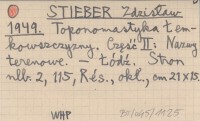 STIEBER Zdzisław
1949. Toponomastyka Łem-
kowszczyzny. Część II: Nazwy
terenowe. Łódź. Stron
nlb. 2, 115, Rés., okł., cm 21 x 15.
WHP